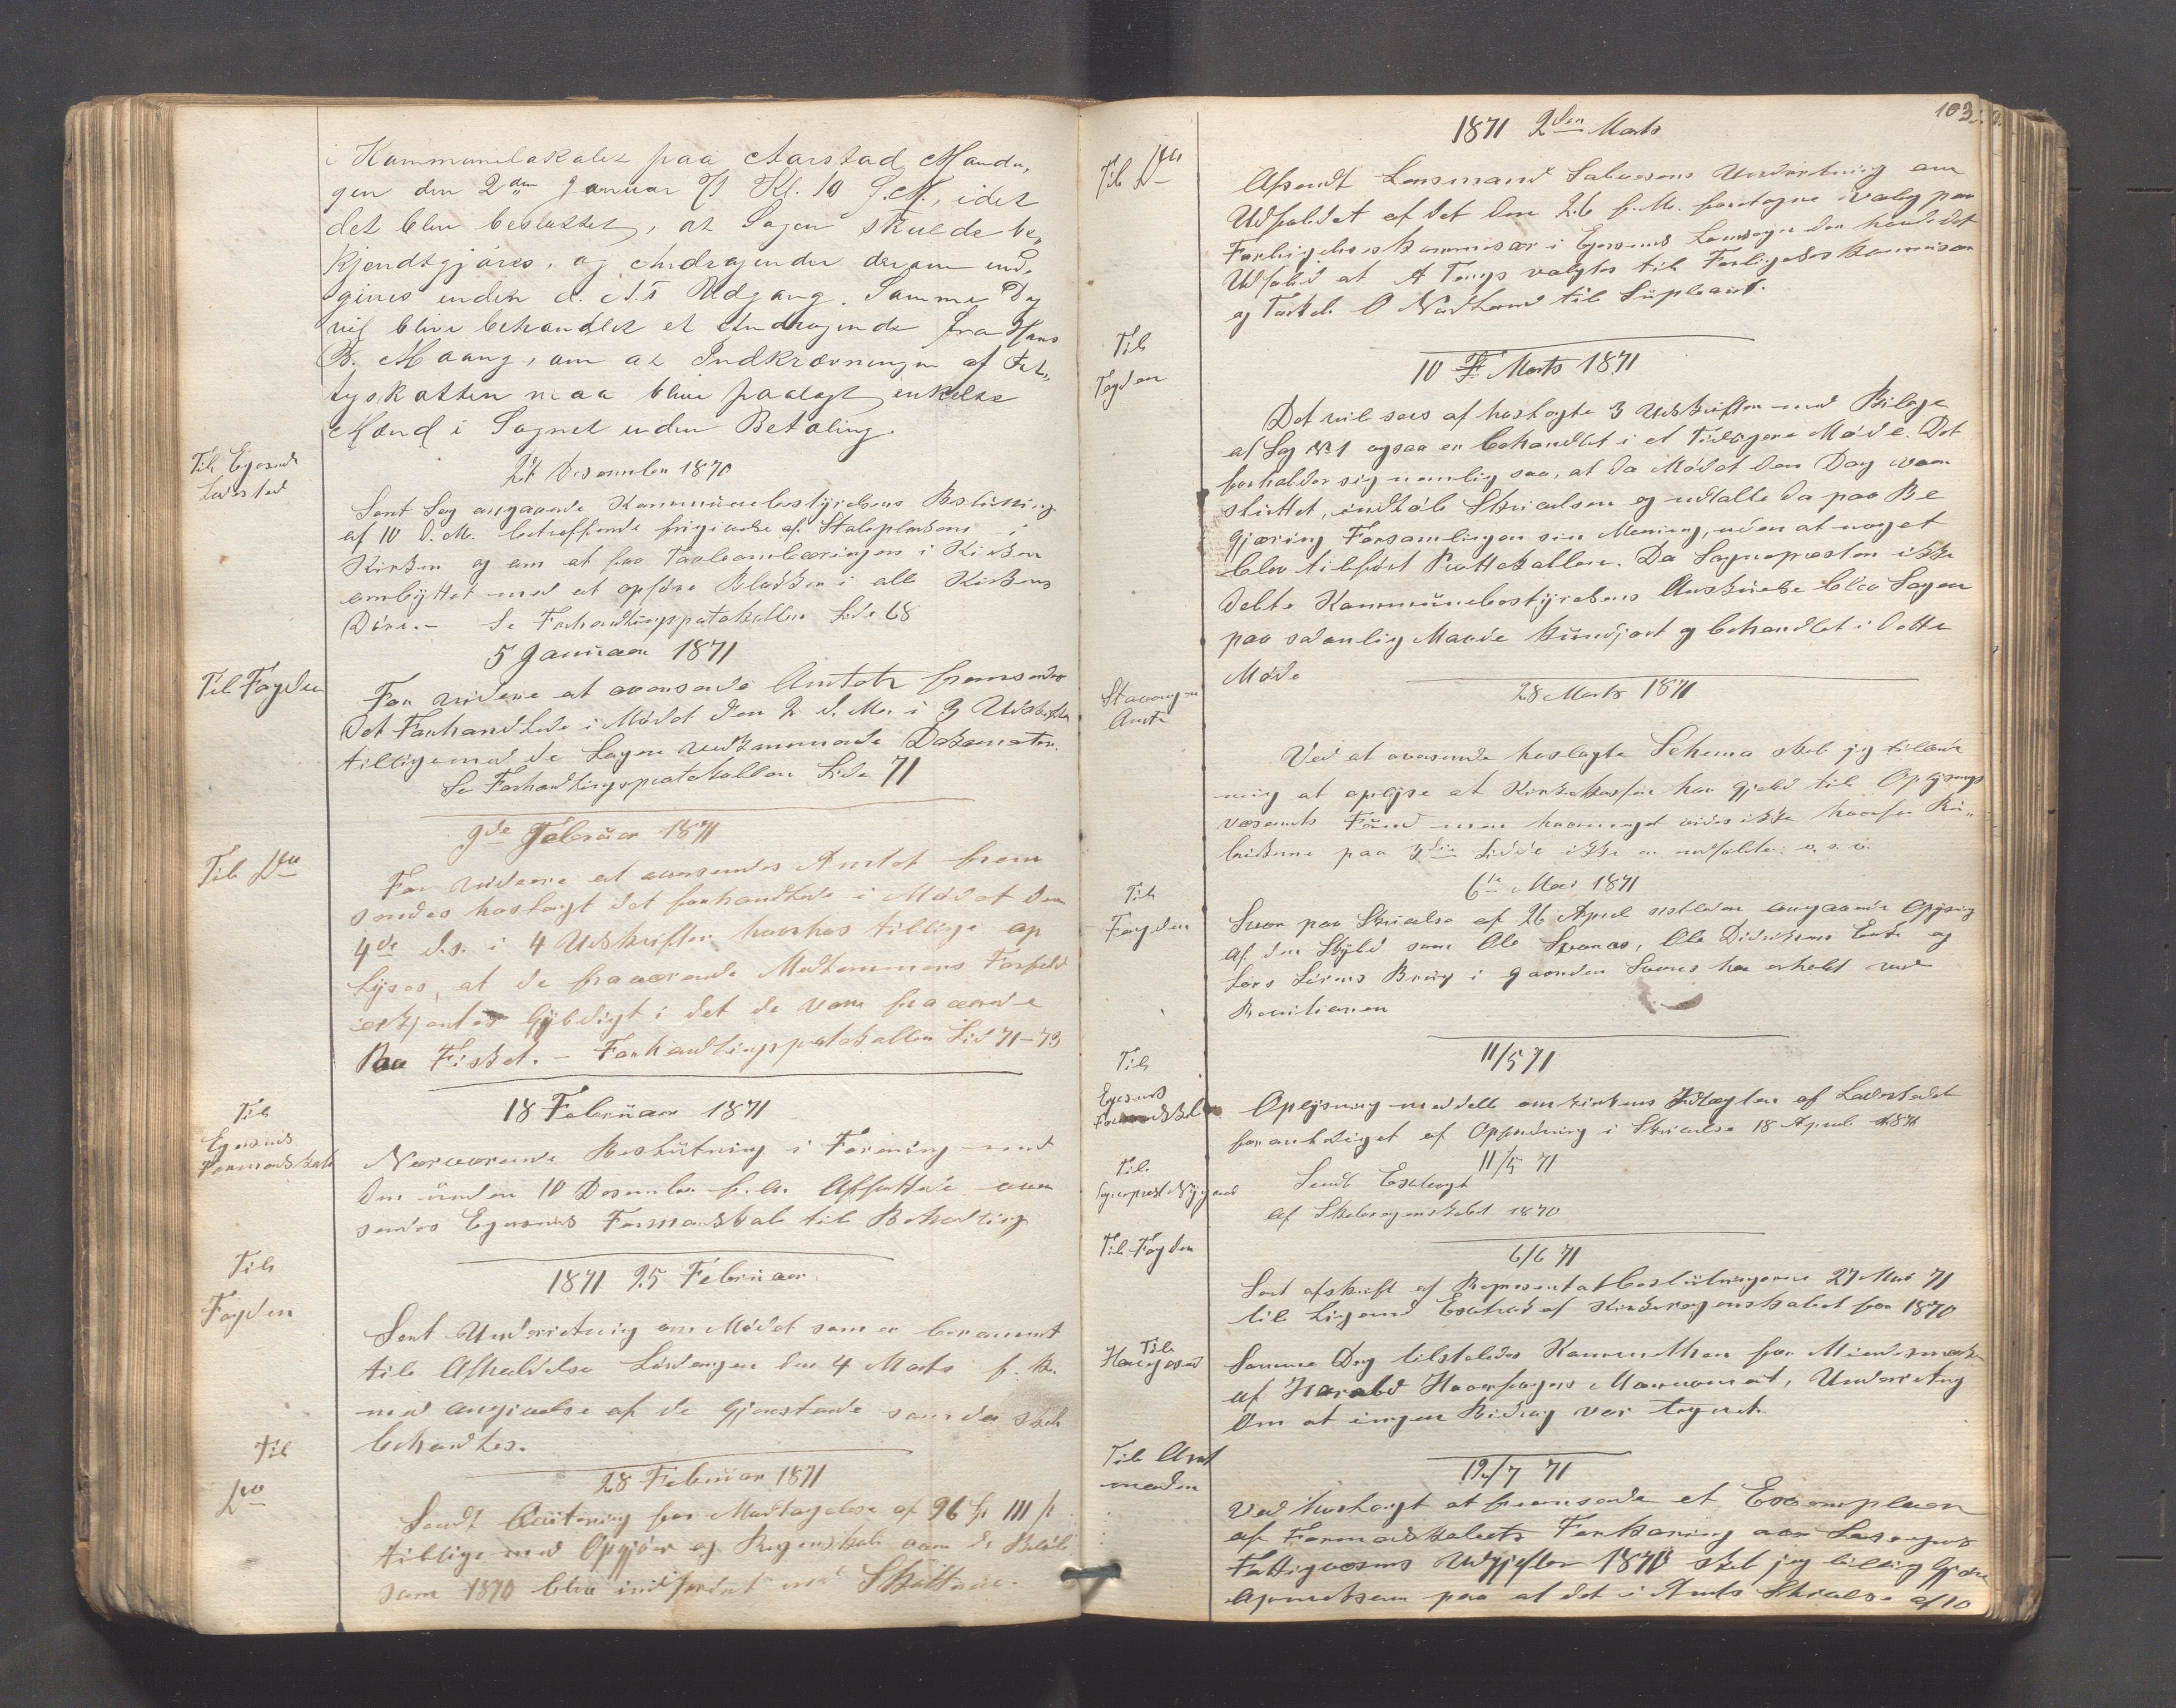 i Kommunelokalet paa Aarstad Manda,
gen den 2den Januar 71 Kl. 10 F.M., idet
det blev besluttet, at Sagen skulde be,
kjendtgjöres, og Andragender derom ind,
gives inden d. A.s Udgang. Samme Dag
vil blive behandlet et Andragende fra Hans
B. Maang, om at Indkrævningen af Fat,
tigskatten maa blive paalagt enkelte
Mænd i Sognet uden Betaling.
Til Egersunds
Ladested
27 Desember 1870
Sent Sag angaaende Kommunebestyrelsens Beslutning
af 10 d. M. betreffende frigivelse af Stolepladsene i
Kirken og om at faa Tavleombæringen i Kirken
ombyttet med at opföre Blokker i alle Kirkens
Döre. - Se Forhandlingsprotokollen Side 68
5 Januar 1871
Til Fogden
For videre at oversende Amtet fremsendes
det Forhandlede i Mödet den 2 d. M. i 3 Udskrifter
tilligemed de Sagen vedkommende Dokumenter.
Se Forhandlingsprotokollen Side 71
9de Februar 1871
Til Do
For videre at oversendes Amtet frem
sendes hoslagt det forhandlede i Mödet den
4de d.s. i 4 Udskrifter hvorhos tillige op
lyses, at de fraværende Medlemmers Forfald
erkjentes Gyldigt i det de vare fraværende
Paa Fisket. - Forhandlingsprotokollen Sid 71-73
18 Februar 1871
Til
Egersunds
Formandskab
Nærværende Beslutning i Forening med
den under 10 Desember f. A. Affattede over
sendes Egersunds Formandskab til Behandling
1871 25 Februar
Til
Fogden
Sent Underretning om Mödet som er berammet
til Afholdelse Löverdagen den 4 Marts f. k.
med angivelse af de Gjenstande som der skal
behandles.
28 Februar 1871
Til
Do
Sendt Qvitering for Modtagelse af 96 111
tillige med Opgjör og Regnskab over de Belöb
som 1870 blev indfordret ved Skattene.
103
1871 2den Marts
Til Do
Afsendt Lensmand Salvesens Underretning om
Udfaldet af det den 26 f. M. foretagne valg paa
Forligelseskommisær i Egersunds Landsogn den havde det
Udfald at A Tengs valgtes til Forligelseskommisær
og Torkel O Nodland til Supleant.
10 Marts 1871
Til
Fogden
Det vil sees af hoslagte 3 Udskrifter med Bilage
at Sag No 1 ogsaa er behandlet i et Tidligere Möde. Det
forholder sig nemlig saa, at da Mödet den Dag var
sluttet, indtöb Skrivelsen og udtalte da paa Be
gjæring Forsamlingen sin Mening, uden at noget
blev tilfört Prottokallen. Da Sognepresten ikke
delte Kommunebestyrelsens Anskuelse blev Sagen
paa sedvanlig Maade kundjort og behandlet i dette
Möde
28 Marts 1871
Stavanger
Amt
Ved at oversende hoslagte Schema skal jeg tillade
mig at oplyse at Kirkekassen har gjeld til Oplysnings
væsenets Fund men hvormeget vides ikke hvorfor Ru,,
brikkerne paa 3die Side ikke er udfyldte: o. s. v.
6te Mai 1871
Til
Fogden
Svar paa Skrivelse af 26 April sistleden angaaende Oplysning
af den Skyld som Ole Svanes, Ole Didriksens Enke og
Lars Larsens Brug i gaarden Svanes har erholdt ved
Revisionen
11/5 71
Til
Egersunds
Formandskab
Oplysning meddelt om kirkens Indtægter af Ladestedet
foranlediget af Opfordring i Skrivelse 18 April 1871
11/5 71
Til
Sogneprest Nygaard
Sendt Extragt
af Skoleregnskabet 1870
6/6 71
Til Fogden
Sent afskrift af Representatbeslutningerne 27 Mai 71
til Ligemed Extrakt af Kirkeregnskabet for 1870
Til
Haugesund
Samme Dag tilstoledes Kommitheen for Mindesmærke
af Harald Haarfagers Monument, Underretning
Om at ingen Bidrag var tegnet.
12/7 71
Til Amt
manden
Ved hoslagt at fremsende et Exemplaar
af Formandskabets Forklaring over Legdsognets
Fattigvæsens Udgifter 1870 skal jeg tillig Gjöre
Opmerksom paa at det i Amts Skrivelse af 10